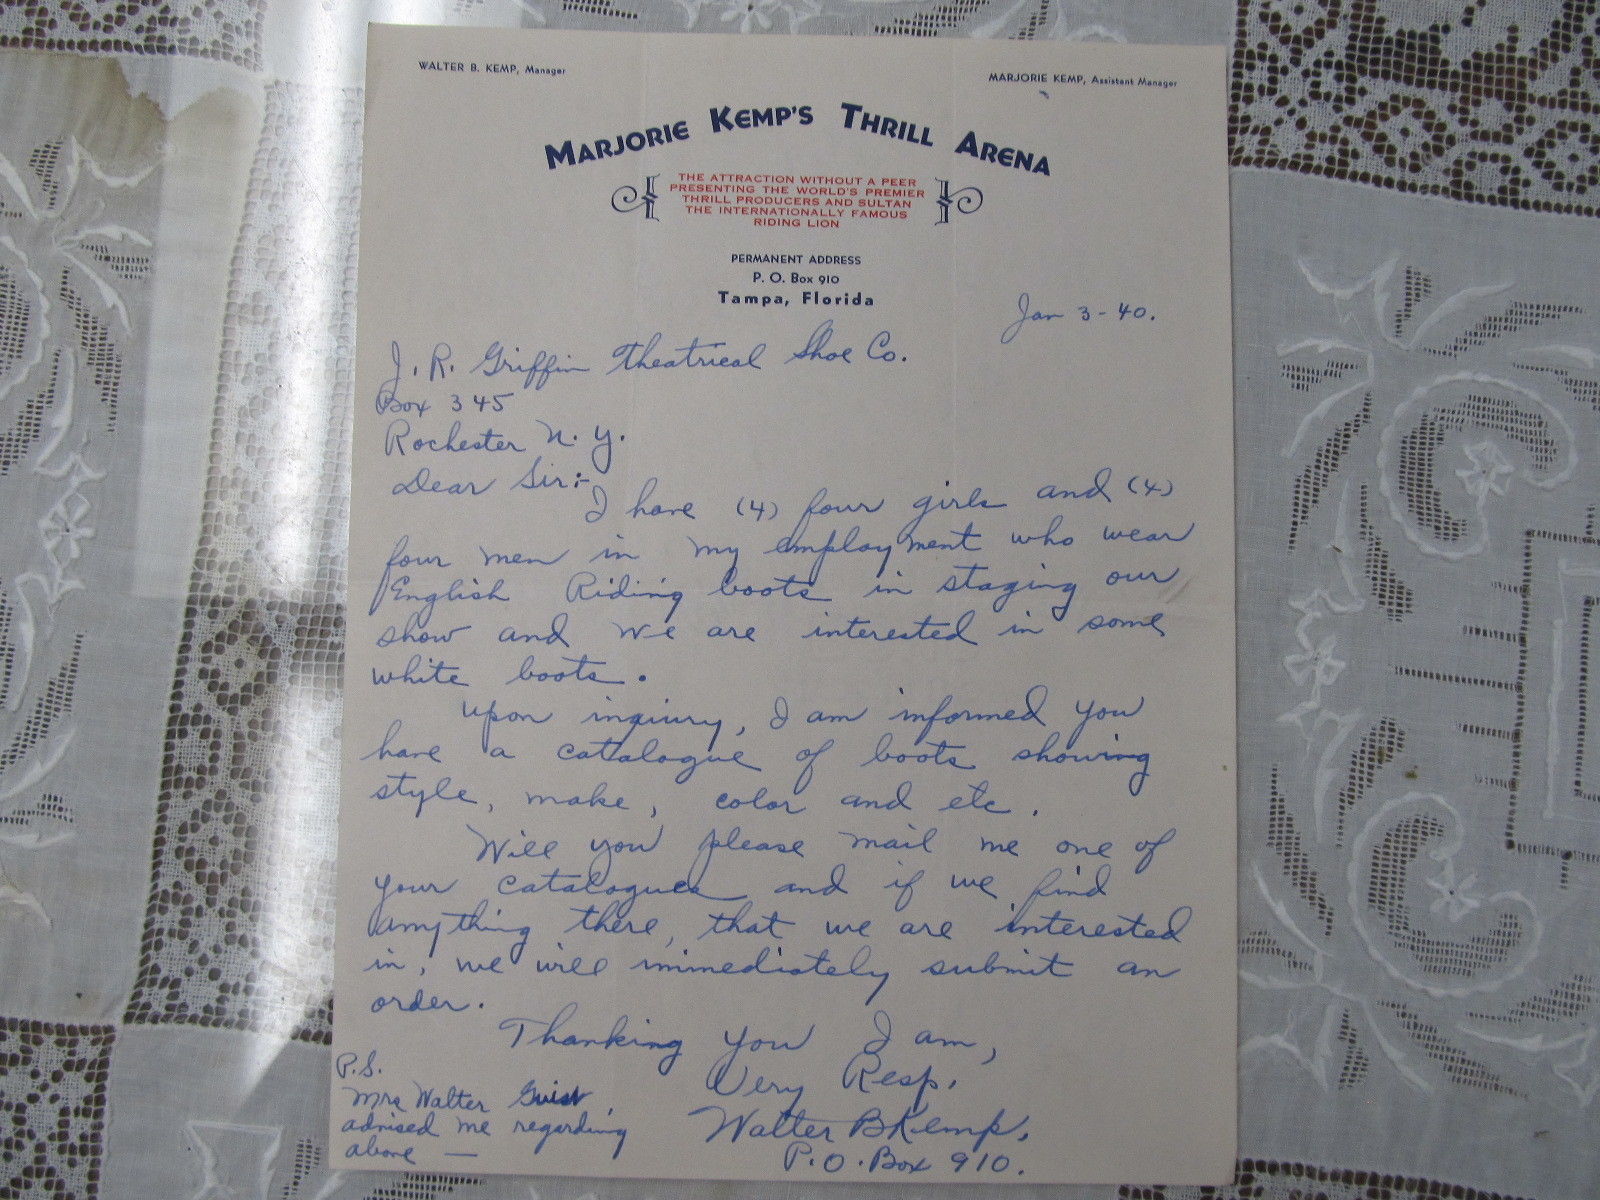 WALTER B. KEMP, Manager
MARJORIE KEMP, Assistant Manager
MARJORIE KEMP'S THRILL ARENA
THE ATTRACTION WITHOUT A PEER
PRESENTING THE WORLD'S PREMIER
THRILL PRODUCERS AND SULTAN
THE INTERNATIONALLY FAMOUS
RIDING LION
PERMANENT ADDRESS
P. O. Box 910
Tampa, Florida
Jan 3 - 40.
J. R. Griffin Theatrical Shoe Co.
Box 345
Rochester N. Y.
Dear Sir:-
I have (4) four girls and (4)
four men in my employment who wear
English Riding boots in staging our
show and we are interested in some
white boots.
Upon inquiry, I am informed you
have a catalogue of boots showing
style, make, color and etc.
Will you please mail me one of
your catalogues and if we find
anything there, that we are interested
in, we will immediately submit an
order.
Thanking you I am,
Very Resp.
Walter B Kemp.
P.O. Box 910.
P.S.
Mrs Walter Guist
advised me regarding
above —